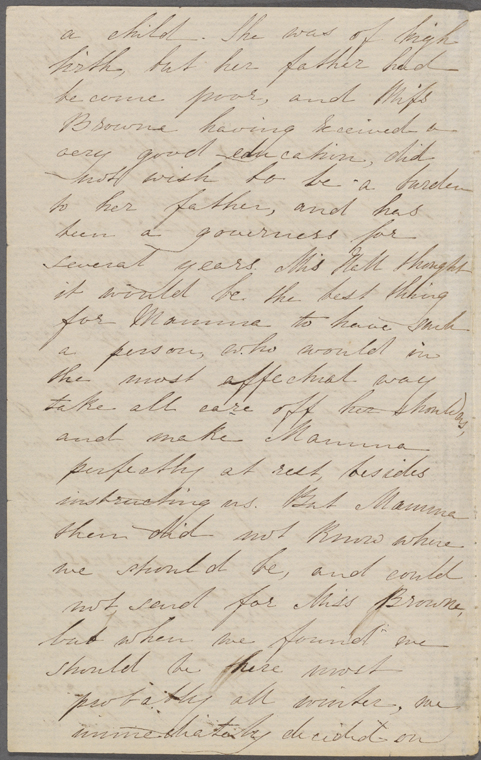 a child. She was of high
birth, but her father had
become poor, and Miss
Browne having received a
very good education, did
not wish to be a burden
to her father, and has
been a governess for
several years. Mrs Hall thought
it would be the best thing
for Mamma to have such
a person, who would in
the most effectual way
take all care off her shoulders,
and make Mamma
perfectly at rest, besides
instructing us. But Mamma
then did not know where
we should be, and could
not send for Miss Browne,
but when we found we
should be here most
probably all winter, we
immediately decided on